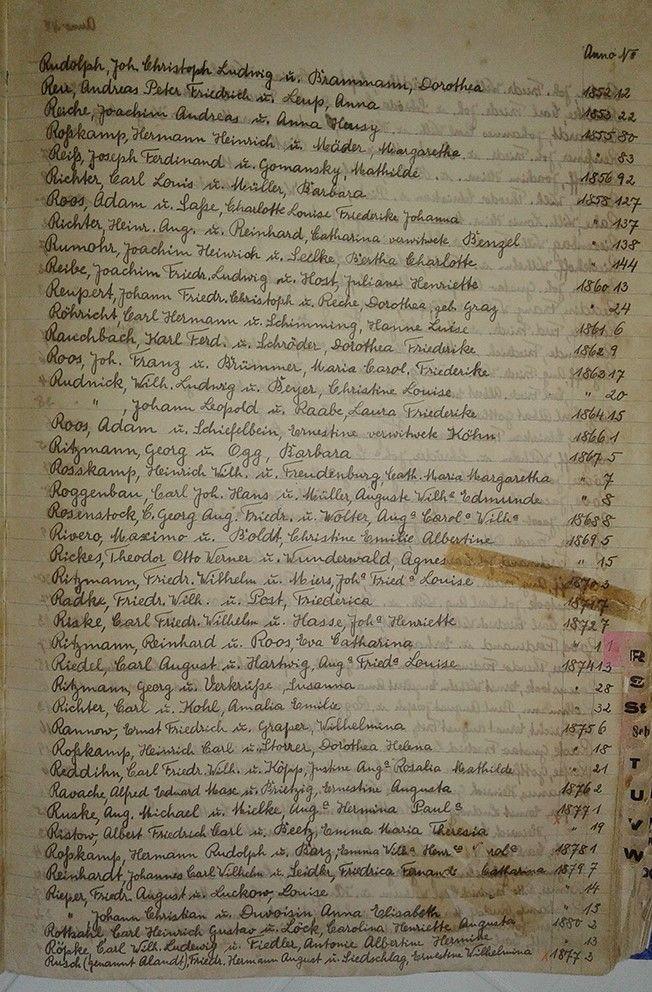 Anno No
Rudolph, Joh. Christoph Ludwig u. Brammann, Dorothea 1852 12
Rerr, Andreas Peter Friedrich u. Leup, Anna 1853 22
Reiche, Joachim Andreas u. Anna Heusy 1855 80
Roßkamp, Hermann Heinrich u. Mäder, Margaretha " 83
Reiß, Joseph Ferdinand u. Gomansky, Mathilde 1856 92
Richter, Carl Louis u. Müller, Barbara 1858 127
Roos, Adam u. Saße, Charlotte Louise Friederike Johanna " 137
Richter, Heinr. Aug. u. Reinhard, Catharina verwitwete Benzel " 138
Rumohr, Joachim Heinrich u. Sellke, Bertha Charlotte " 144
Reibe, Joachim Friedr. Ludwig u. Host, Juliane Henriette 1860 13
Reupert, Johann Friedr. Christoph u. Reche, Dorothea, geb. Gray " 24
Röhricht, Carl Hermann u. Schimming, Hanne Luise 1861 6
Rauchbach, Karl Ferd. u. Schröder, Dorothea Friederike 1862 9
Roos, Joh. Franz u. Brümmer, Maria Carol. Friederike 1863 17
Rudnick, Wilh. Ludwig u. Beyer, Christine Louise " 20
" , Johann Leopold u. Raabe, Laura Friederike 1864 15
Roos, Adam u. Schiefelbein, Ernestine verwitwete Köhn 1866 1
Ritzmann, Georg u. Ogg, Barbara 1867 5
Rosskamp, Heinrich Wilh. u. Freudenburg, Cath. Maria Margaretha " 7
Roggenbau, Carl Joh. Hans u. Müller, Auguste Wilhᵃ Edmunde " 8
Rosenstock, C. Georg Aug. Friedr. u. Wolter, Augᵃ Carolᵃ Wilhᵃ 1868 8
Rivero, Maximo u. Boldt, Christine Emilie Albertine 1869 5
Rickes, Theodor Otto Werner u. Wunderwald, Agnes " 15
Ritzmann, Friedr. Wilhelm u. Miers, Johᵃ Friedᵃ Louise 1870 3
Radke, Friedr. Wilh. u. Post, Friederica 1871
Riske, Carl Friedr. Wilhelm u. Hasse, Johᵃ Henriette 1872 7
Ritzmann, Reinhard u. Roos, Eva Catharina " 11
Riedel, Carl August u. Hartwig, Augᵃ Friedᵃ Louise 1874 13
Ritzmann, Georg u. Verkrüße, Susanna " 28
Richter, Carl u. Kohl, Amalia Emilie " 32
Rannow, Ernst Friedrich u. Graper, Wilhelmina 1875 6
Roßkamp, Heinrich Carl u. Storrer, Dorothea Helena " 18
Reddihn, Carl Friedr. Wilh. u. Köpp, Justine Augᵃ Rosalia Mathilde " 21
Ravache, Alfred Eduard Max u. Brietzig, Ernestine Augusta 1876 2
Ruske, Aug. Michael u. Mielke, Augᵃ Hermina Paulᵃ 1877 1
Ristow, Albert Friedrich Carl u. Beetz, Emma Maria Theresia " 19
Roßkamp, Hermann Rudolph u. Barz, Emma Wilhᵃ Henrᵃ rolᵃ 1878 1
Reinhardt, Johannes Carl Wilhelm u. Seidler, Friedrica Fernande Catharina 1879 7
Rieper, Friedr. August u. Luckow, Louise " 14
" Johann Christian u. Duvoisin, Anna Elisabeth " 15
Rottsahl, Carl Heinrich Gustav u. Löck, Carolina Henriette Augusta 1880 2
Röpke, Carl Wilh. Ludewig u. Fiedler, Antonie Albertine Hermine " 13
Rusch (genannt Alandt), Friedr. Hermann August u. Liedschlag, Ernestine Wilhelmina x 1877 2
R
S
St
Sch
T
U
V
W